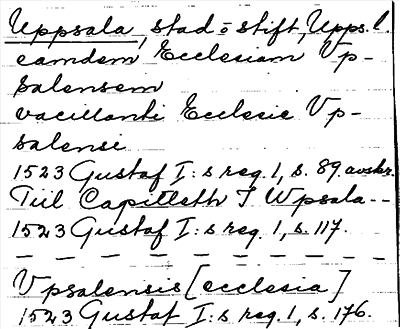 Uppsala, stad o stift, Upps. l.
eamdem Ecclesiam Vp-
salensem
vacillanti Ecclesie Vp-
salensi
1523 Gustaf I:s reg. 1, s. 89 avskr.
Till Capitleth I Wpsala--
1523 Gustaf I:s reg. 1, s. 117.
Vpsalensis [ecclesia]
1523 Gustaf I:s reg. 1, s. 176.